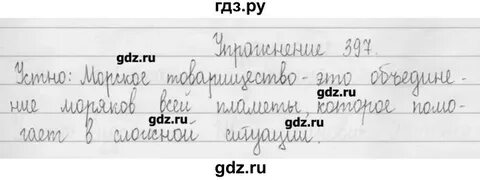 гдз.ру
Упражнение 397.
Устно: Морское товарищество - это объедине-
gdz.ru
gdz.ru
ние моряков всей планеты, которое помо-
гает в сложной ситуации.
gdz.ru
gdz.ru